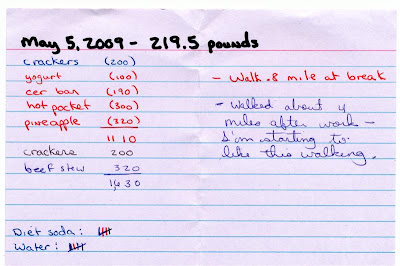 May 5, 2009 - 219.5 pounds
crackers (200)
yogurt (100)
cer bar (190)
hot pocket (300)
pineapple (320)
1110
crackers 200
beef stew 320
1,630
- Walk .8 mile at break
- Walked about 4
miles after work -
I'm starting to
like this walking.
Diet soda: 𝍸
Water: 𝍸